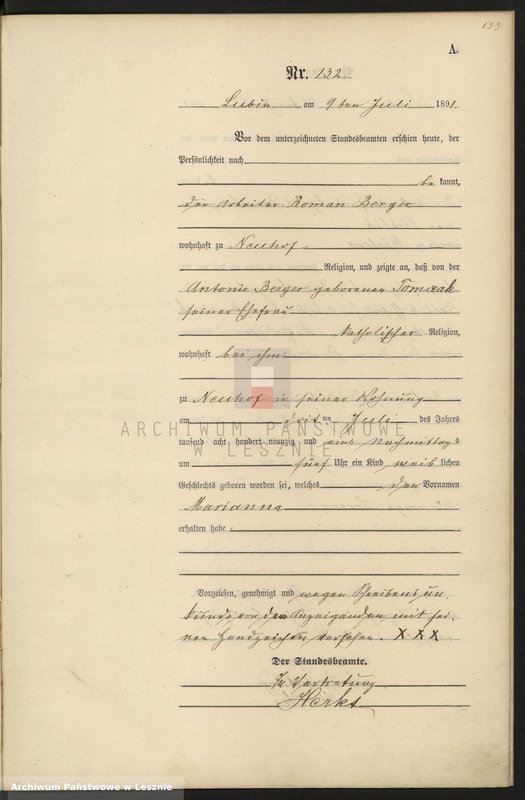 133
A.
Nr. 132.
Lubin am 9ten Juli 1891.
Vor dem unterzeichneten Standesbeamten erschien heute, der
Persönlichkeit nach
be kannt,
der Arbeiter Roman Berger
wohnhaft zu Neuhof
Religion, und zeigte an, daß von der
Antonie Berger geborenen Tomczak
seiner Ehefrau
katholischer Religion,
wohnhaft bei ihm
zu Neuhof in seiner Wohnung
am ten Juli des Jahres
tausend acht hundert neunzig und eins Nachmittags
um fünf Uhr ein Kind weib lichen
Geschlechts geboren worden sei, welches den Vornamen
Marianna
erhalten habe
Vorgelesen, genehmigt und wegen Schreibensun-
kunde von dem Anzeigenden mit sei-
nen Handzeichen versehen. X X X
Der Standesbeamte.
In Vertretung
ARCHIWUM PAŃSTWOWE
W LESZNIE
Archiwum Państwowe w Lesznie